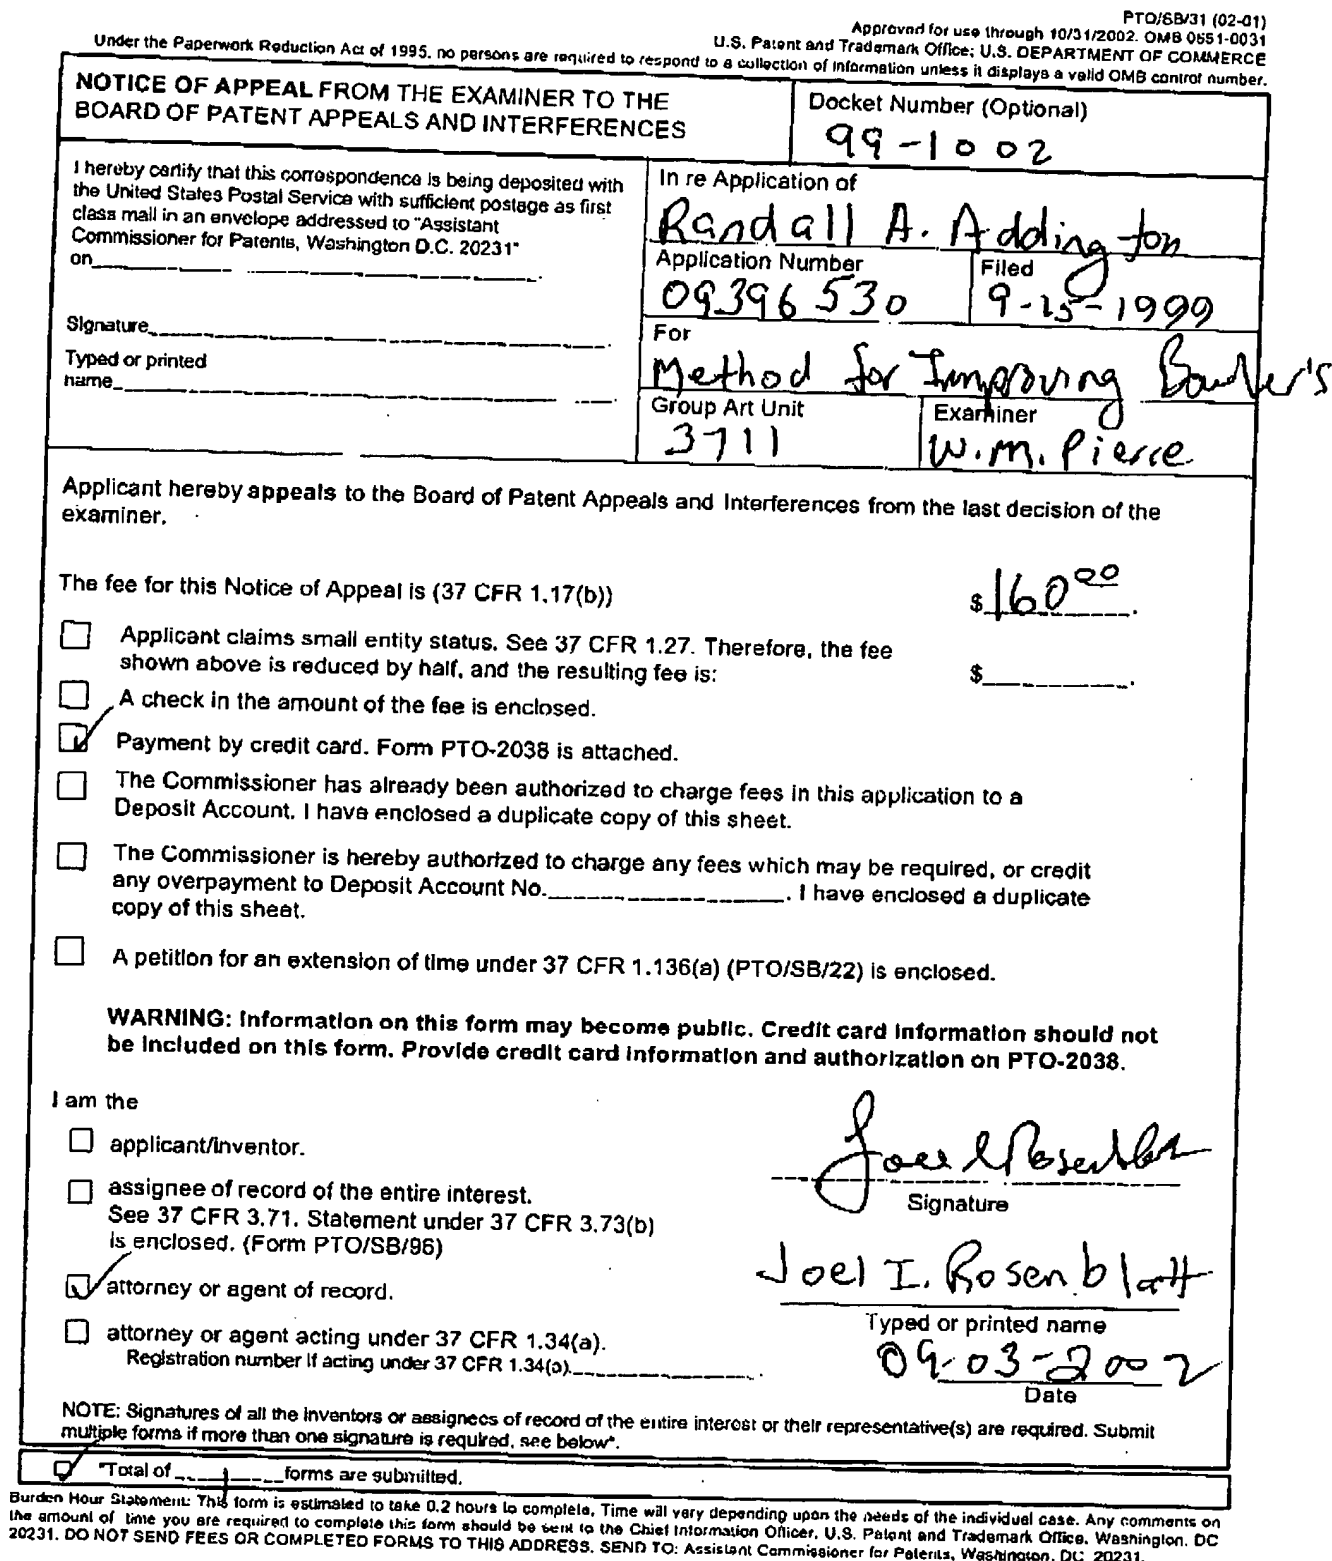 PTO/SB/31 (02-01)
Approved for use through 10/31/2002. OMB 0651-0031
U.S. Patent and Trademark Office; U.S. DEPARTMENT OF COMMERCE
Under the Paperwork Reduction Act of 1995, no persons are required to respond to a collection of information unless it displays a valid OMB control number.
NOTICE OF APPEAL FROM THE EXAMINER TO THE
BOARD OF PATENT APPEALS AND INTERFERENCES
Docket Number (Optional)
99-1002
I hereby certify that this correspondence is being deposited with
the United States Postal Service with sufficient postage as first
class mail in an envelope addressed to "Assistant
Commissioner for Patents, Washington D.C. 20231"
on
Signature
Typed or printed
name
In re Application of
Randall A. Addington
Application Number
09396530
Filed
9-15-1999
For
Method for Improving Bowler's
Group Art Unit
3711
Examiner
W.M. Pierce
Applicant hereby appeals to the Board of Patent Appeals and Interferences from the last decision of the
examiner.
The fee for this Notice of Appeal is (37 CFR 1.17(b))
$ 160 00.
Applicant claims small entity status. See 37 CFR 1.27. Therefore, the fee
shown above is reduced by half, and the resulting fee is:
$ .
A check in the amount of the fee is enclosed.
Payment by credit card. Form PTO-2038 is attached.
The Commissioner has already been authorized to charge fees in this application to a
Deposit Account. I have enclosed a duplicate copy of this sheet.
The Commissioner is hereby authorized to charge any fees which may be required, or credit
any overpayment to Deposit Account No. . I have enclosed a duplicate
copy of this sheet.
A petition for an extension of time under 37 CFR 1.136(a) (PTO/SB/22) is enclosed.
WARNING: Information on this form may become public. Credit card information should not
be included on this form. Provide credit card information and authorization on PTO-2038.
I am the
applicant/inventor.
assignee of record of the entire interest.
See 37 CFR 3.71. Statement under 37 CFR 3.73(b)
is enclosed. (Form PTO/SB/96)
attorney or agent of record.
attorney or agent acting under 37 CFR 1.34(a).
Registration number if acting under 37 CFR 1.34(a).
Joel I Rosenblatt
Signature
Joel I. Rosenblatt
Typed or printed name
09-03-2002
Date
NOTE: Signatures of all the inventors or assignees of record of the entire interest or their representative(s) are required. Submit
multiple forms if more than one signature is required, see below*.
*Total of 1 forms are submitted.
Burden Hour Statement: This form is estimated to take 0.2 hours to complete. Time will vary depending upon the needs of the individual case. Any comments on
the amount of time you are required to complete this form should be sent to the Chief Information Officer, U.S. Patent and Trademark Office, Washington, DC
20231. DO NOT SEND FEES OR COMPLETED FORMS TO THIS ADDRESS. SEND TO: Assistant Commissioner for Patents, Washington, DC 20231.